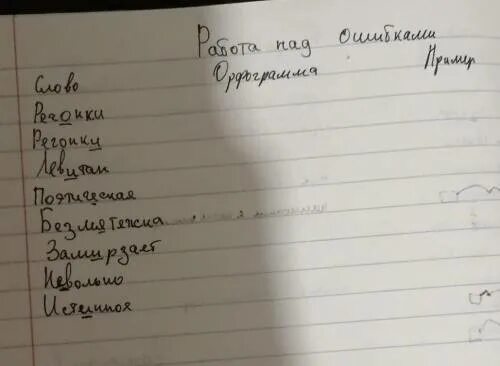 Работа над ошибками
Слово Орфограмма Пример
Регонки
Регонки
Левитан
Поэтическая
Безмятежна
Замирзает
Невольно
Истенноя